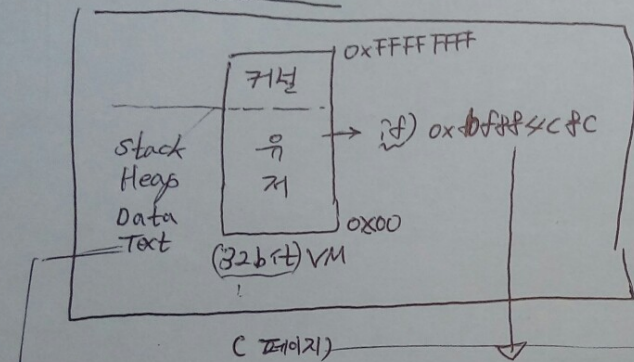 0xFFFFFFFF
커널
Stack
Heap
Data
Text
유
저
if) 0xbfff4c8c
0x00
(32bit) VM
(페이지)